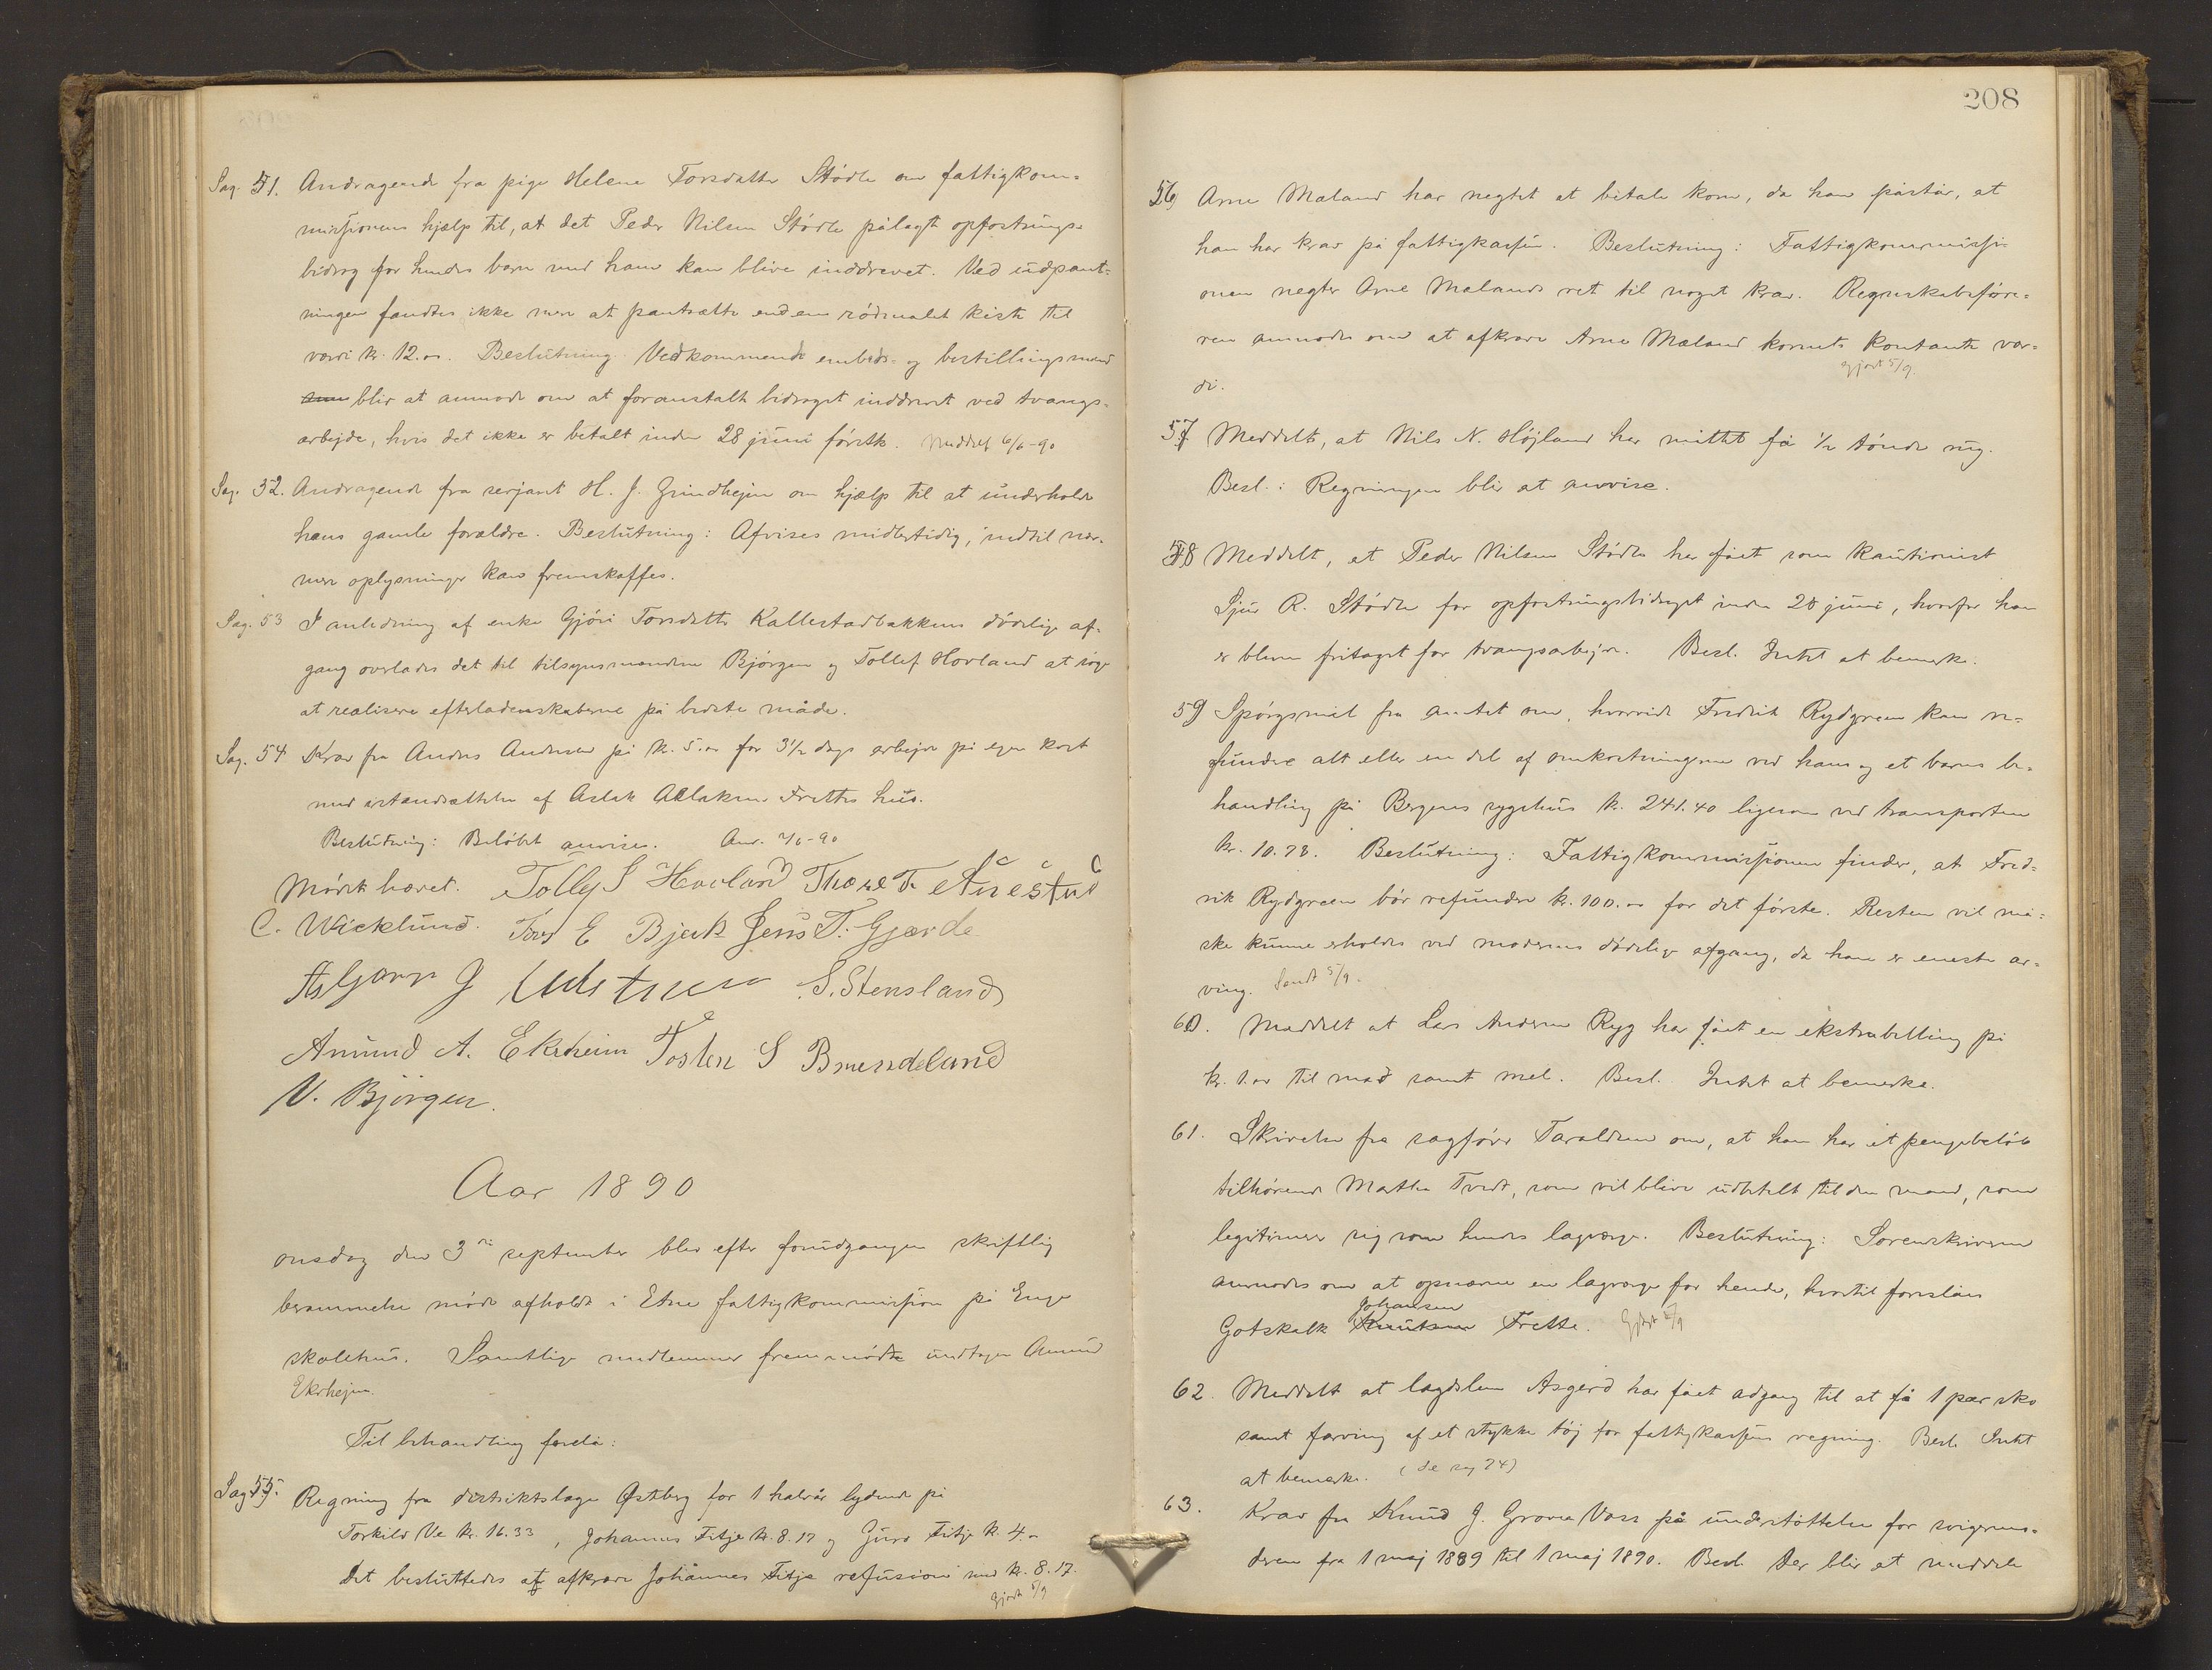 Sag. 51. Andragende fra pige Helene Torsdatter Stødle om fattigkom=
missionens hjælp til, at det Peder Nilsen Stødle pålagte opfostrings=
bidrag for hendes barn med ham kan blive inddrevet. Ved udpant=
ningen fandtes ikke mere at pantsætte end en rødmalet kiste til
værdi kr. 12.00. Beslutning: Vedkommende embeds- og bestillingsmænd
som blir at anmode om at foranstalte bidraget inddrevet ved tvangs=
arbejde, hvis det ikke er betalt inden 28 juni førstk. Meddelt 6/6-90
Sag. 52. Andragende fra serjant H. J. Grindhejm om hjælp til at underholde
hans gamle forældre. Beslutning: Afvises midlertidig, indtil nær=
mere oplysninger kan fremskaffes.
Sag. 53 I anledning af enke Gjøri Torsdatter Kallestadbakkens dødelige af=
gang overlades det til tilsynsmændene Bjørgen og Tollef Hovland at søge
at realisere efterladenskaberne på bedste måde.
Sag. 54 Krav fra Anders Andersen på kr. 5.00 for 3 1/2 dags arbejde på egen kost
med istandsættelse af Aslak Aslaksen Frettes hus.
Beslutning: Beløbet anvises. Anv. 7/6-90
Mødet hævet. Tollef S Hovland Thore T. Anestul
C. Wicklund. Tord E Bjerk Jens T. Gjærde
Asbjørn J S. Stensland
Amund A. Ekrheim Tosten S Brendeland
N. Bjørgen.
Aar 1890
onsdag den 3die september blev efter forudgangen skriftlig
berammelse møde afholdt i Etne fattigkommission på Enge
skolehus. Samtlige medlemmer fremmødte undtagen Amund
Ekrhejm.
Til behandling forelå:
Sag 55. Regning fra distriktslæge Østberg for 1 halvår lydende på
Torkild Ve kr. 16.33, Johannes Fitje kr. 8.17 og Guro Fitje kr. 4.00
Det besluttedes at afkræve Johannes Fitje refusion med kr. 8.17.
Gjort 5/9
208
56) Arne Mæland har negtet at betale korn, da han påstår, at
han har krav på fattigkassen. Beslutning: Fattigkommissi=
onen negter Arne Mælands ret til noget krav. Regnskabsføre=
ren anmodes om at afkræve Arne Mæland kornets kontante vær=
Gjort 5/9.
di.
57 Meddelt, at Nils N. Højland har måttet få 1/2 tønde rug.
Besl.: Regningen blir at anvise.
58 Meddelt, at Peder Nilsen Stødle har fået som kautionist
Sjur R. Stødle for opfostringsbidraget inden 28 juni, hvorfor han
er bleven fritaget for tvangsarbejde. Besl. Intet at bemerke.
59 Spørgsmål fra amtet om, hvorvidt Fredrik Rydgreen kan re=
fundere alt eller en del af omkostningerne ved hans og et barns be=
handling på Bergens sygehus kr. 241.40 ligesom ved transporten
kr. 10.78. Beslutning: Fattigkommissionen finder, at Fred=
rik Rydgreen bør refundere kr. 100.00 for det første. Resten vil må=
ske kunne erholdes ved moderens dødelige afgang, da han er eneste ar=
ving. Sendt 5/9.
60. Meddelt at Lars Andersen Ryg har fået en ekstrabetling på
kr. 1.00 til mad samt mel. Besl. Intet at bemerke.
61. Skrivelse fra sagfører Taraldsen om, at han har et pengebeløb
tilhørende Mathe Tvedt, som vil blive udbetalt til den mand, som
legitimerer sig som hendes lagværge. Beslutning: Sorenskriveren
anmodes om at opnævne en lagværge for hende, hvortil foreslåes
Johansen
Gotskalk Knutsen Frette. Gjort 5/9
62. Meddelt at lægdslem Asgerd har fået adgang til at få 1 par sko
samt farving af et stykke tøj for fattigkassens regning. Besl. Intet
at bemerke. (Se sag 24)
63. Krav fra Knud J. Grove Voss på understøttelse for svigermo=
deren fra 1 maj 1889 til 1 maj 1890. Besl. Der blir at meddele